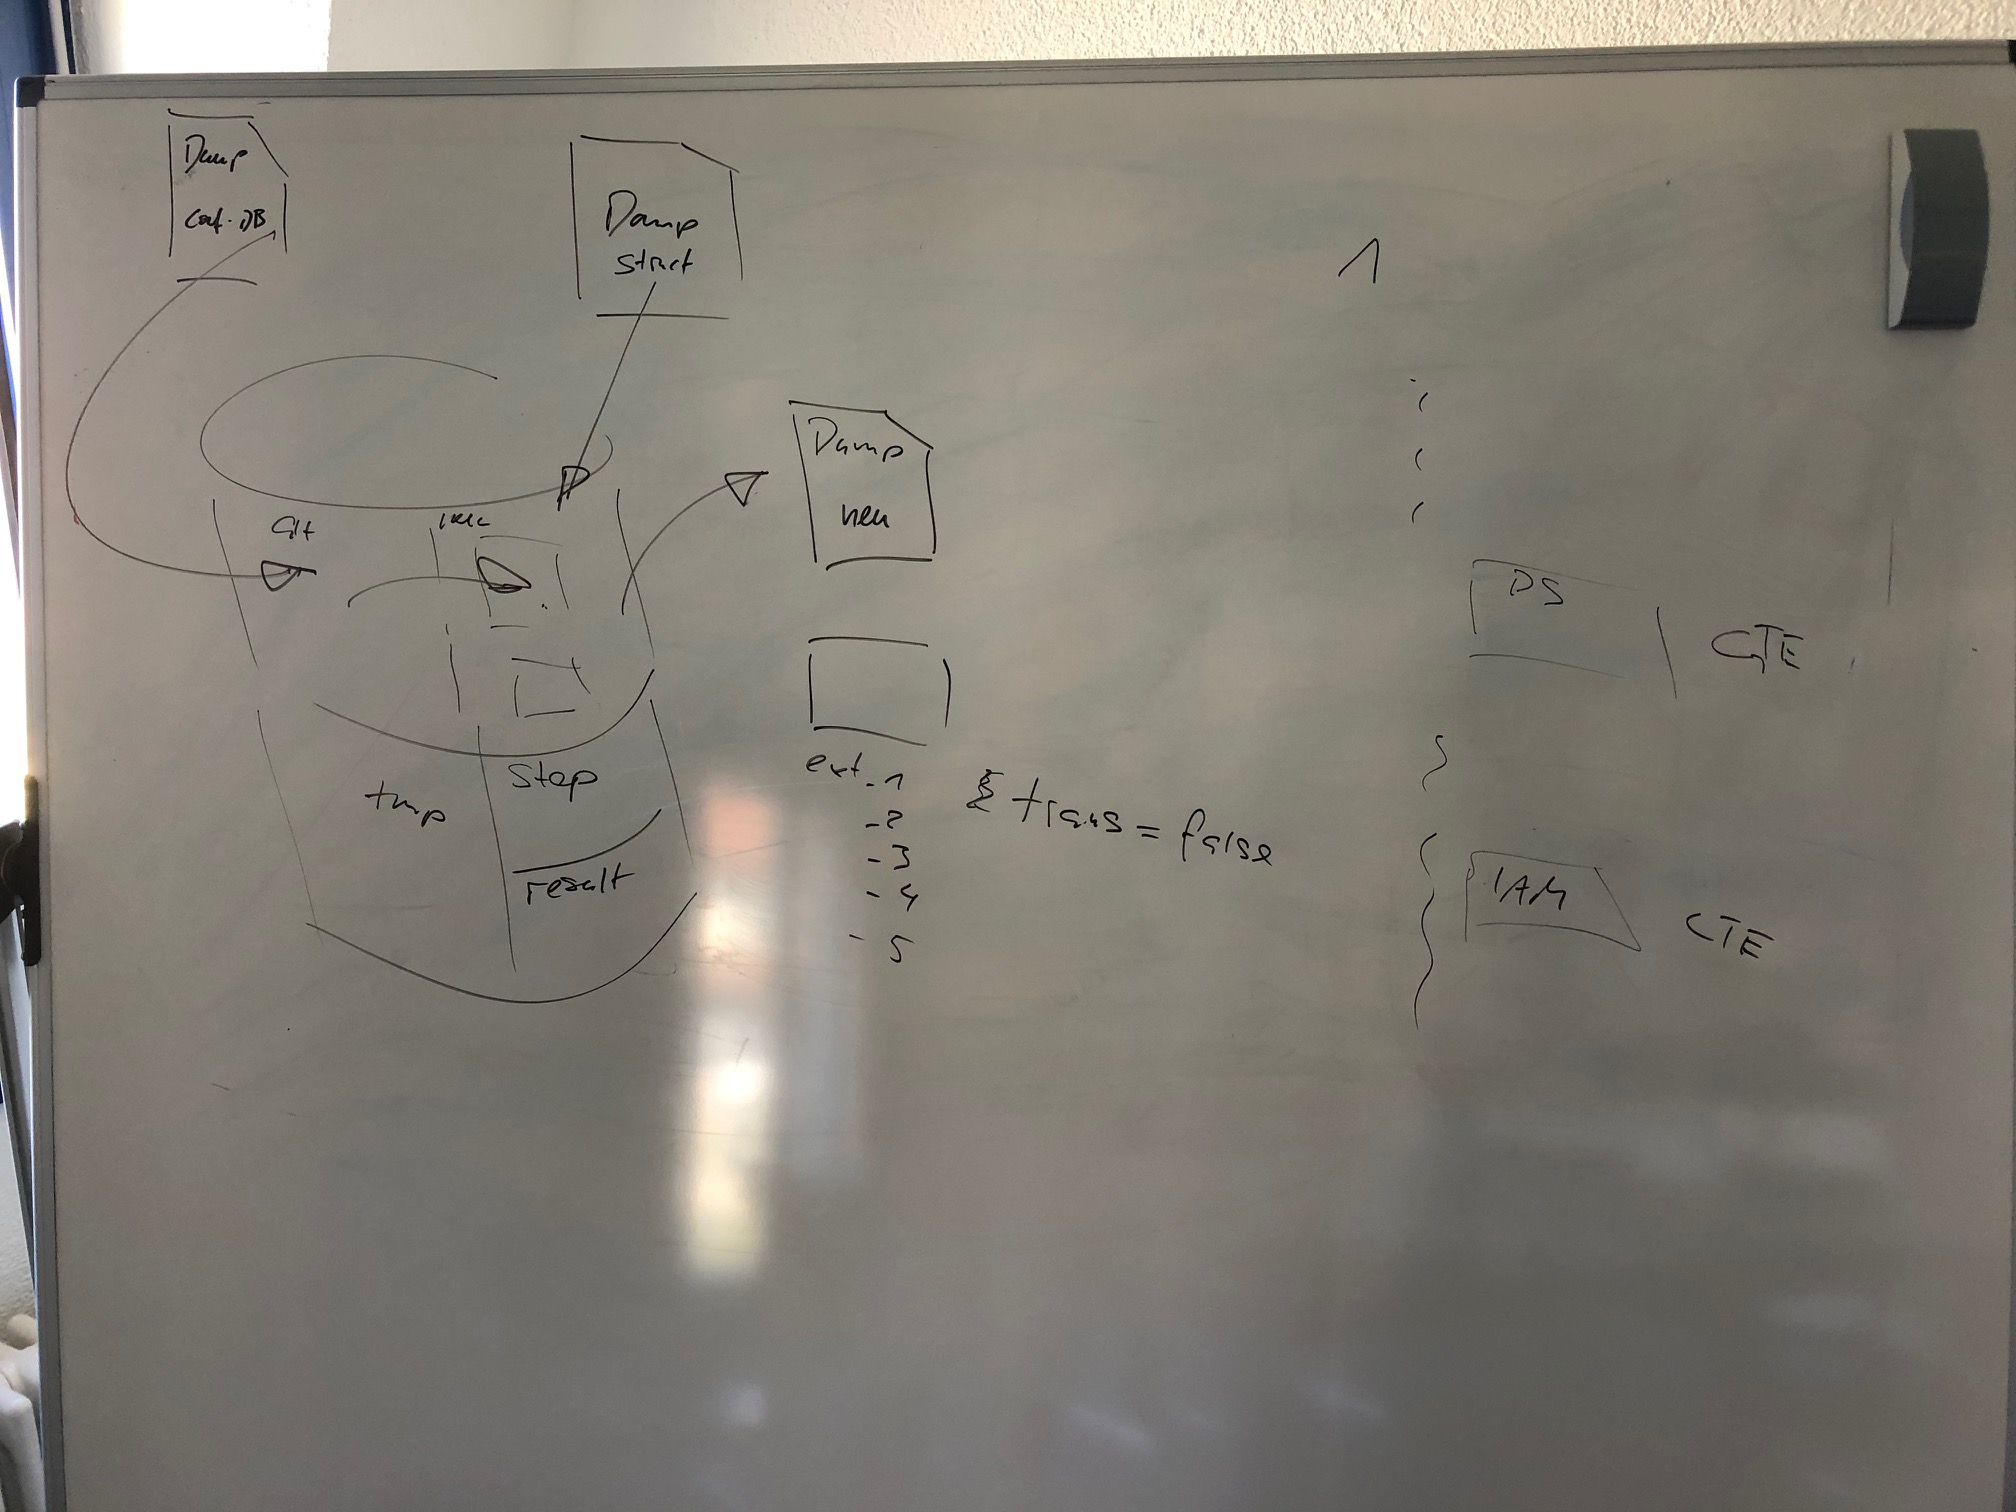 Dump
conf. DB
Dump
struct
1
Dump
neu
alt
neu
DS
CTE
tmp
step
result
ext. - 1
- 2
- 3
- 4
- 5
trans = false
IAM
CTE